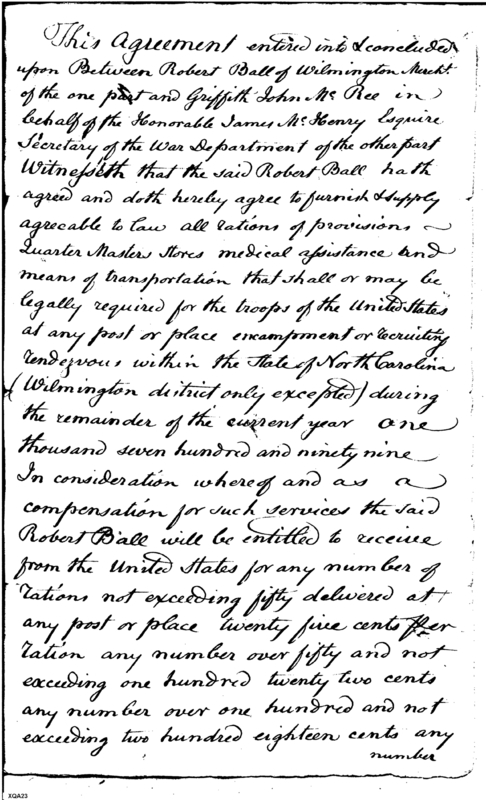 This Agreement entired into & concluded
upon Between Robert Ball of Wilmington Mercht.
of the one part and Griffith John Mc Ree in
behalf of the Honorable James Mc Henry Esquire
Secretary of the War Department of the other part
Witnesseth that the said Robert Ball hath
agreed and doth hereby agree to furnish & supply
agreeable to law all rations of provisions
Quarter Masters Stores medical assistance and
means of transportation that shall or may be
legally required for the troops of the United States
at any post or place encampment or recruiting
rendezvous within the State of North Carolina
(Wilmington district only excepted) during
the remainder of the current year one
thousand seven hundred and ninety nine
In consideration whereof and as a
compensation for such services the said
Robert Ball will be entitled to receive
from the United States for any number of
rations not exceeding fifty delivered at
any post or place twenty five cents per
ration any number over fifty and not
exceeding one hundred twenty two cents
any number over one hundred and not
exceeding two hundred eighteen cents any
number
XQA23